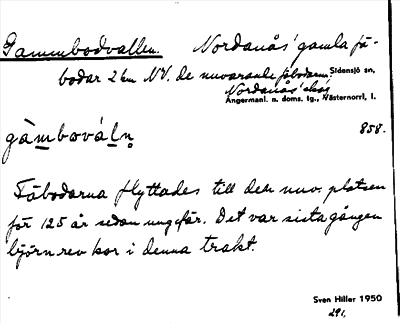 Gammbodvallen. Nordanås' gamla fä-
bodar 2 km NV. de nuvarande fäbodarna, Sidensjö sn,
Nordanås' skog
Ångermanl. n. doms. tg., Västernorrl. l.
gàmbovál̥n̥ 858.
Fäbodarna flyttades till den nuv. platsen
för 125 år sedan ungefär. Det var sista gången
björn rev kor i denna trakt.
Sven Hiller 1950
291.